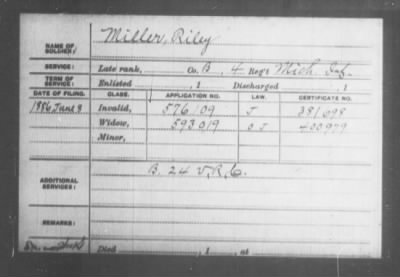 NAME OF SOLDIER: Miller, Riley
SERVICE: Late rank, Co. B, 4 Reg't Mich. Inf.
TERM OF SERVICE: Enlisted , 1 Discharged , 1
DATE OF FILING. CLASS. APPLICATION NO. LAW. CERTIFICATE NO.
1886 June 8 Invalid, 576109 J 381098
Widow, 593019 O J 400979
Minor,
ADDITIONAL SERVICES: B. 24 V.R.C.
REMARKS:
Died , 1 , at